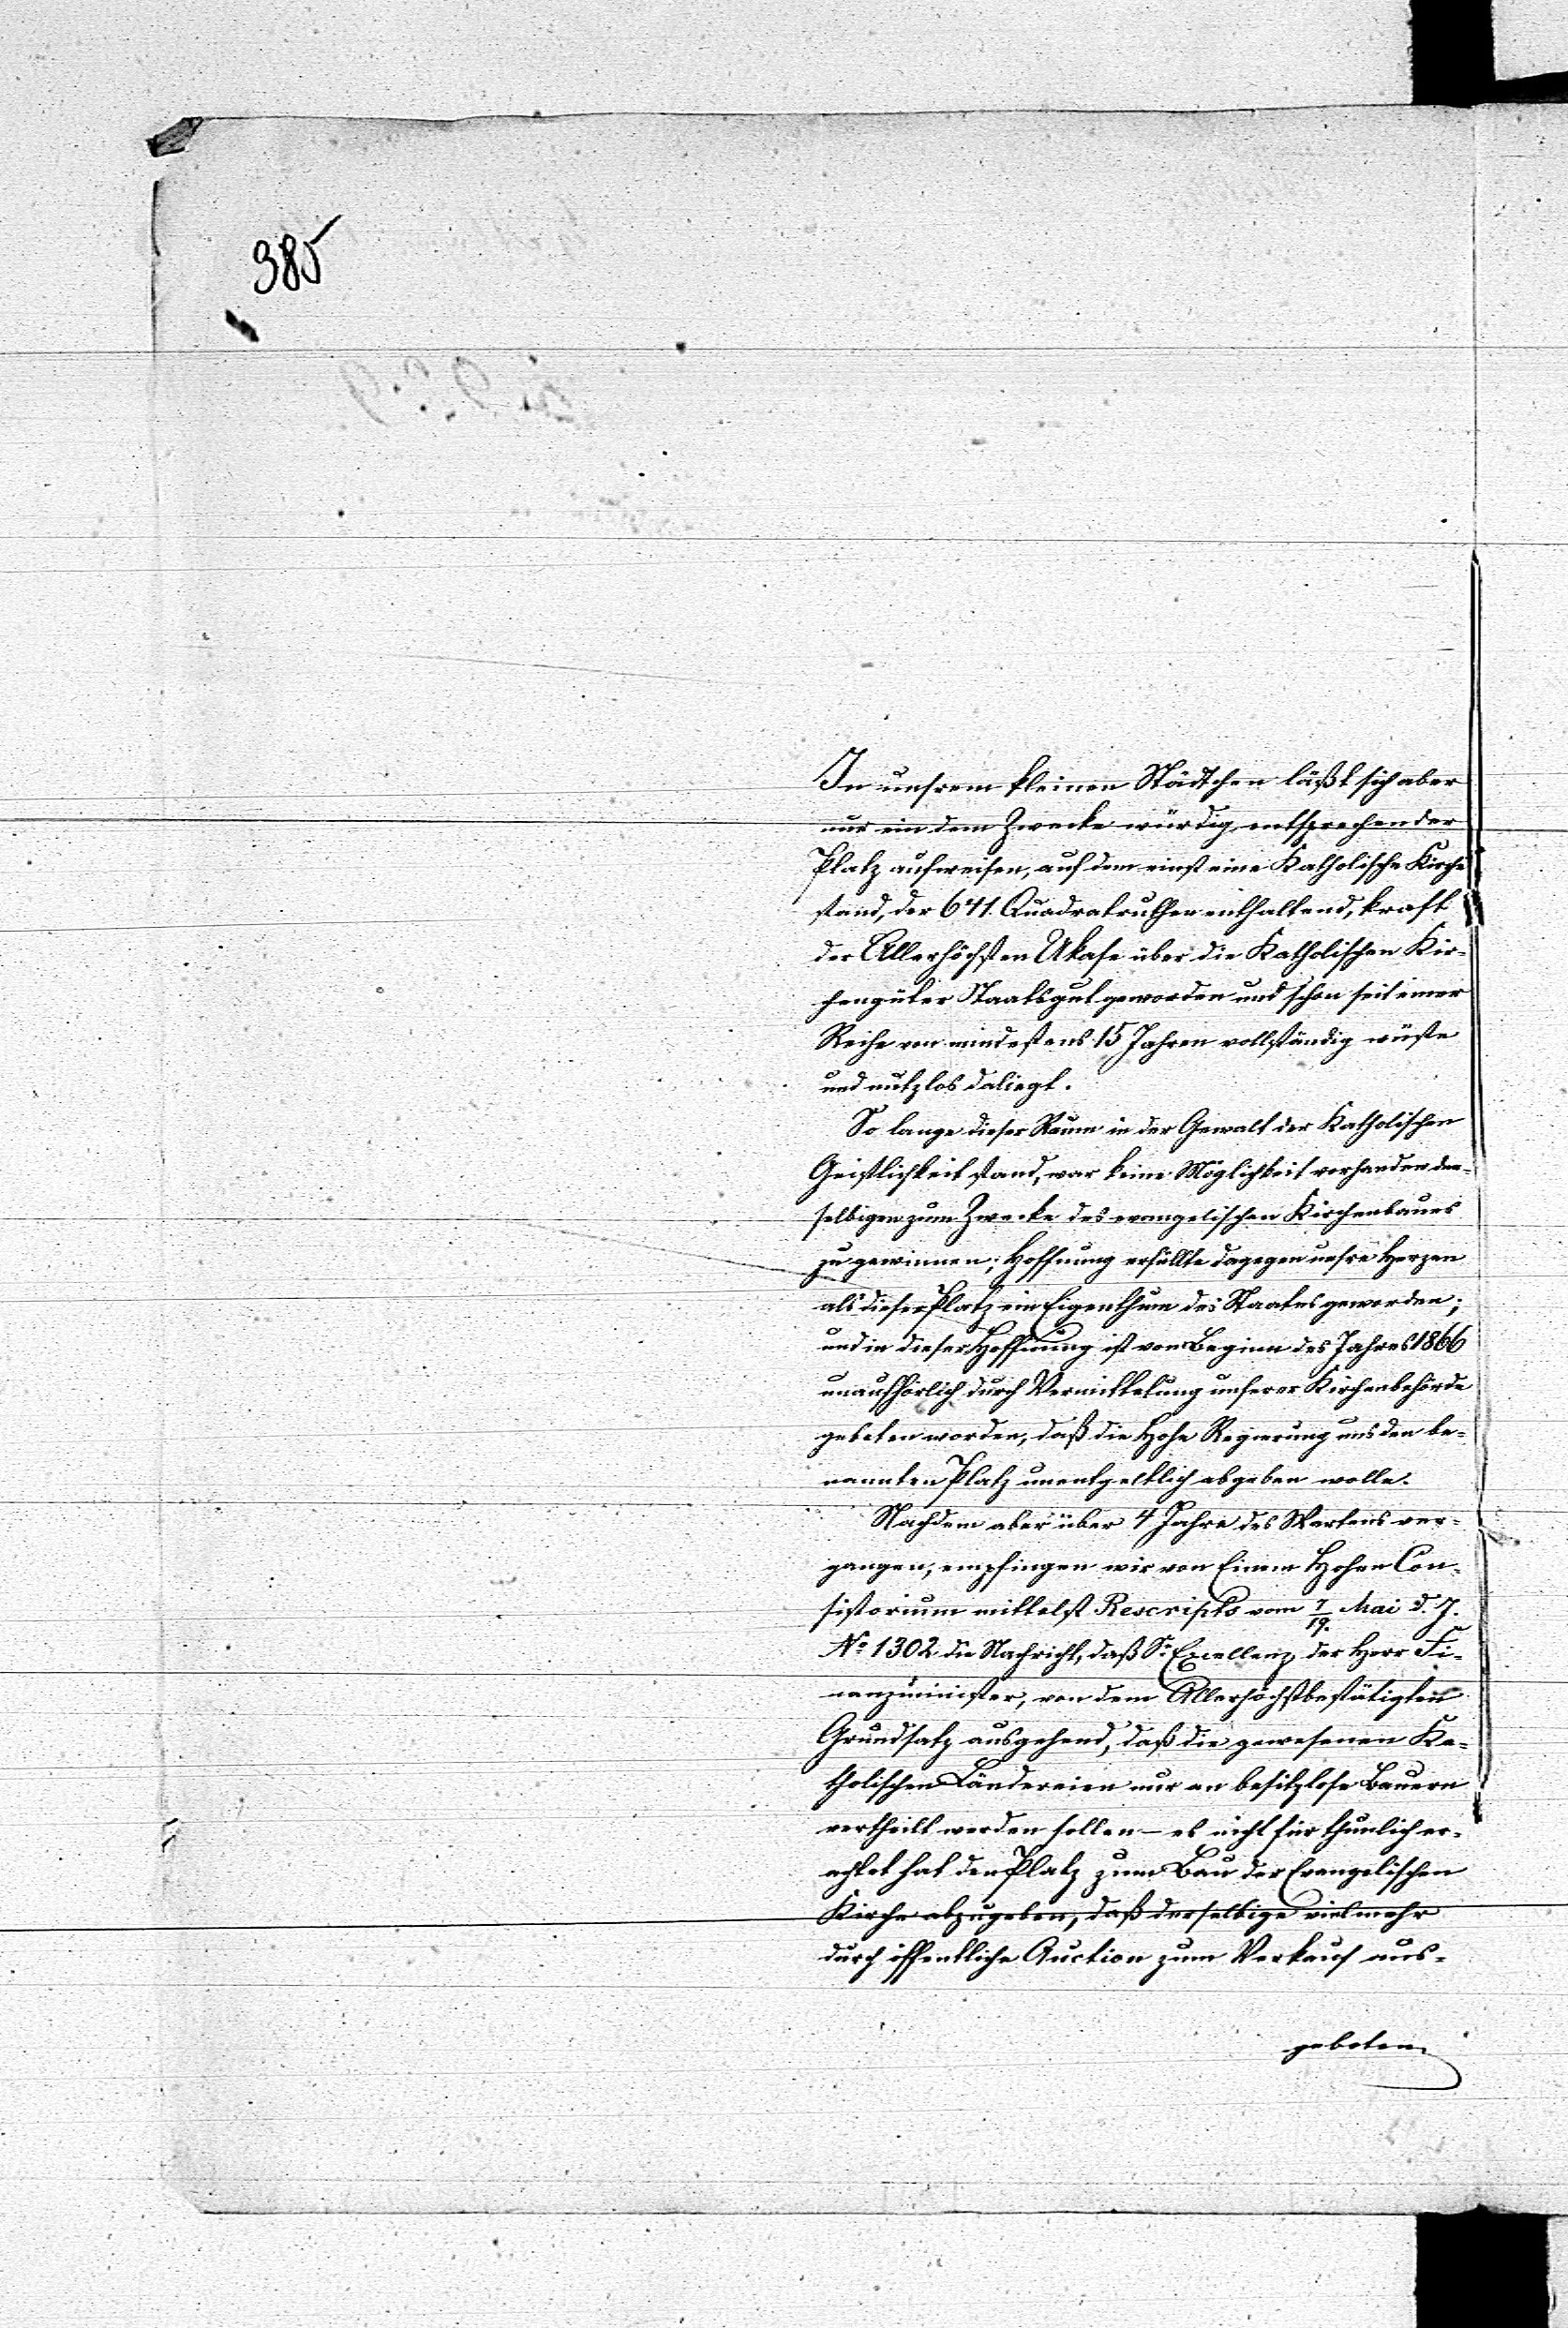 385
In unsrem kleinen Städtchen läßt sich aber
nur ein dem Zwecke würdig entsprechender
Platz aufweisen, auf dem einst eine Katholische Kirche
stand, der 641. Quadratruthen enthaltend, kraft
der Allerhöchsten Ukase über die Katholischen Kir-
chengüter Staatsgut geworden und schon seit einer
Reihe von mindestens 15 Jahren vollständig wüste
und nutzlos daliegt.
So lange dieser Raum in der Gewalt der Katholischen
Geistlichkeit stand, war keine Möglichkeit vorhanden den-
selbigen zum Zwecke des evangelischen Kirchenbaues
zu gewinnen; Hoffnung erfüllte dagegen unsre Herzen
als dieser Platz ein Eigenthum des Staates geworden;
und in dieser Hoffnung ist von Beginn des Jahres 1866
unaufhörlich durch Vermittelung unserer Kirchenbehörde
gebeten worden, daß die Hohe Regierung uns den be-
nannten Platz unentgeltlich abgeben wolle.
Nachdem aber über 4 Jahre des Wartens ver-
gangen, empfingen wir von Einem Hohen Con-
sistorium mittelst Rescripts vom 7/19. Mai d. J.
No 1302 die Nachricht, daß Se Excellenz der Herr Fi-
nanzminister, von dem Allerhöchstbestätigten
Grundsatz ausgehend, daß die gewesenen Ka-
tholischen Ländereien nur an besitzlose Bauern
vertheilt werden sollen – es nicht für thunlich er-
achtet hat den Platz zum Bau der Evangelischen
Kirche abzugeben, daß derselbige vielmehr
durch öffentliche Auction zum Verkauf aus-
geboten